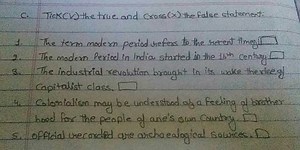 C. Tick(✓) the true and Cross(×) the false statement.
1. The term modern period refers to the recent time.
2. The modern Period in India started in the 16th century
3. The industrial revolution brought in its wake the rise of
Capitalist class.
4. Colonialism may be understood as a feeling of brother
hood for the people of one's own Country.
5. official recorded are archaealogical sources.